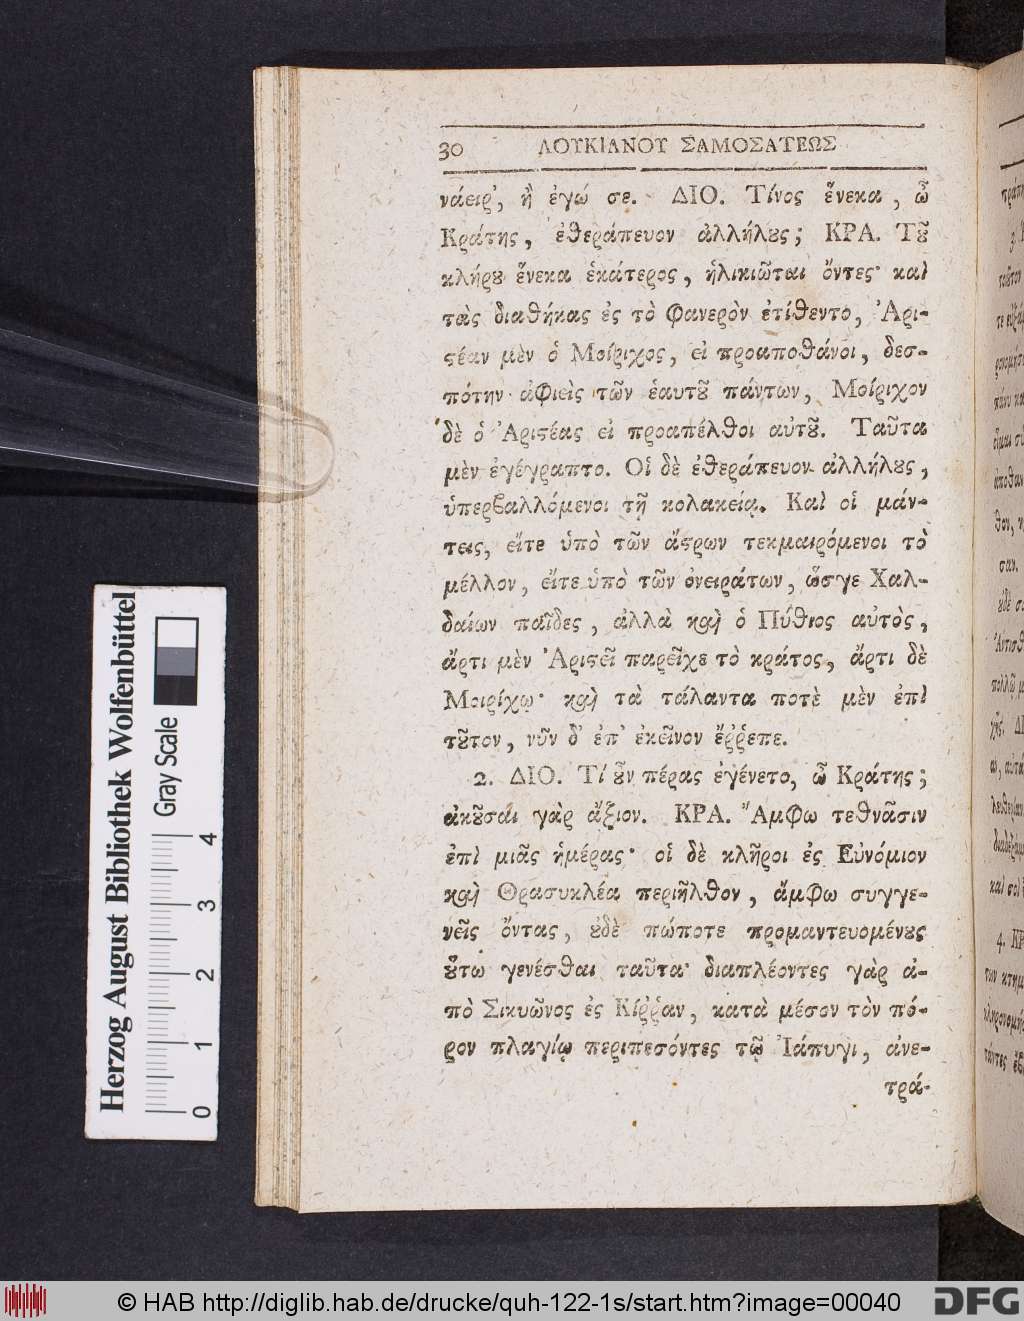 30 ΛΟΥΚΙΑΝΟΥ ΣΑΜΟΣΑΤΕΩΣ
νάειρ', ἢ ἐγώ σε. ΔΙΟ. Τίνος ἕνεκα, ὦ
Κράτης, ἐθεράπευον ἀλλήλȣς; ΚΡΑ. Τȣ͂
κλήρȣ ἕνεκα ἑκάτερος, ἡλικιῶται ὄντες· καὶ
τὰς διαθήκας ἐς τὸ φανερὸν ἐτίθεντο, Ἀρι-
ϛέαν μὲν ὁ Μοίριχος, εἰ προαποθάνοι, δεσ-
πότην ἀφιεὶς τῶν ἑαυτȣ͂ πάντων, Μοίριχον
δὲ ὁ Ἀριϛέας εἰ προαπέλθοι αὐτȣ͂. Ταῦτα
μὲν ἐγέγραπτο. Οἱ δὲ ἐθεράπευον ἀλλήλȣς,
ὑπερϐαλλόμενοι τῇ κολακείᾳ. Καὶ οἱ μάν-
τεις, εἴτε ὑπὸ τῶν ἄϛρων τεκμαιρόμενοι τὸ
μέλλον, εἴτε ὑπὸ τῶν ὀνειράτων, ὥσγε Χαλ-
δαίων παῖδες, ἀλλὰ καὶ ὁ Πύθιος αὐτὸς,
ἄρτι μὲν Ἀριϛεῖ παρεῖχε τὸ κράτος, ἄρτι δὲ
Μοιρίχῳ· καὶ τὰ τάλαντα ποτὲ μὲν ἐπὶ
τȣ͂τον, νῦν δ' ἐπ' ἐκεῖνον ἔῤῥεπε.
2. ΔΙΟ. Τί ȣ͂̓ν πέρας ἐγένετο, ὦ Κράτης;
ἀκȣ͂σαι γὰρ ἄξιον. ΚΡΑ. Ἄμφω τεθνᾶσιν
ἐπὶ μιᾶς ἡμέρας· οἱ δὲ κλῆροι ἐς Εὐνόμιον
καὶ Θρασυκλέα περιῆλθον, ἄμφω συγγε-
νεῖς ὄντας, ȣ̓δὲ πώποτε προμαντευομένȣς
ȣ͂̔τω γενέσθαι ταῦτα· διαπλέοντες γὰρ ἀ-
πὸ Σικυῶνος ἐς Κίῤῥαν, κατὰ μέσον τὸν πό-
ρον πλαγίῳ περιπεσόντες τῷ Ἰάπυγι, ἀνε-
τρά-
Herzog August Bibliothek Wolfenbüttel
Gray Scale
0 1 2 3 4
© HAB http://diglib.hab.de/drucke/quh-122-1s/start.htm?image=00040
DFG